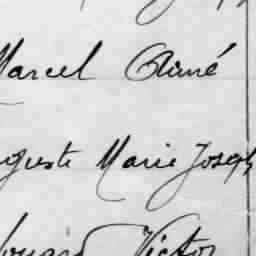 Marcel Aimé
Auguste Marie Joseph
Victor